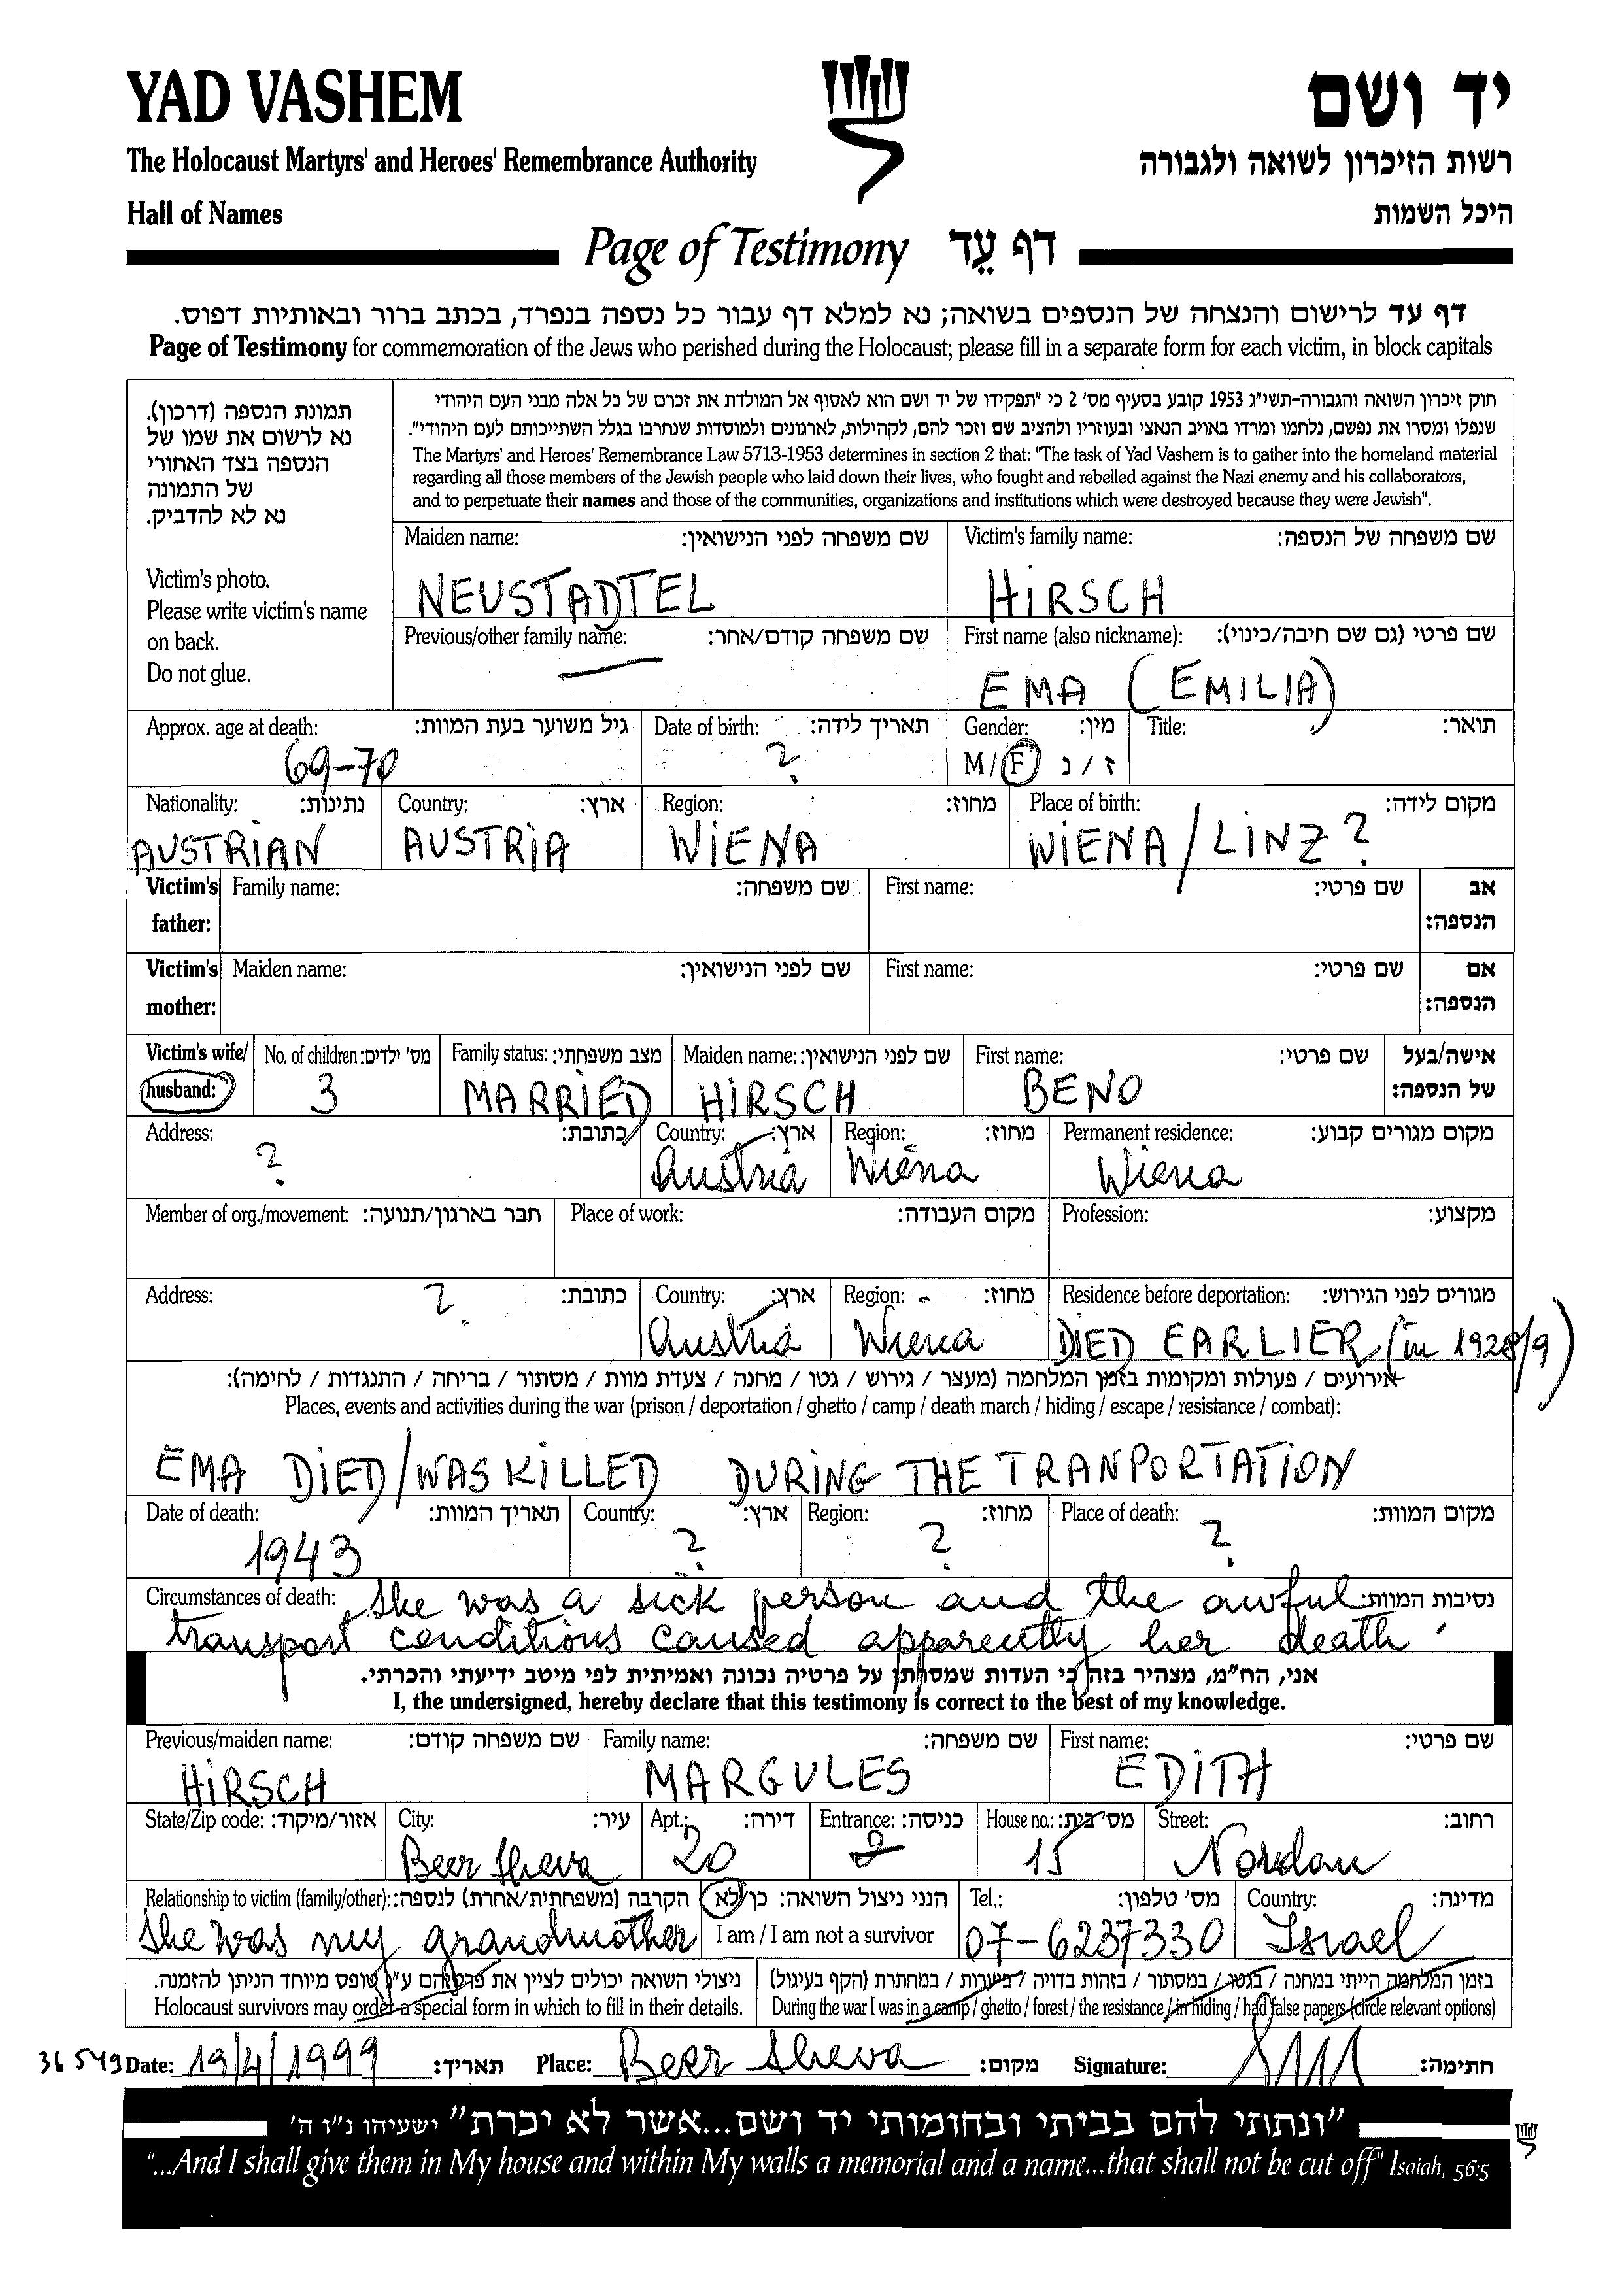 YAD VASHEM
יד ושם
The Holocaust Martyrs' and Heroes' Remembrance Authority
רשות הזיכרון לשואה ולגבורה
Hall of Names
היכל השמות
Page of Testimony דף עֵד
דף עד לרישום והנצחה של הנספים בשואה; נא למלא דף עבור כל נספה בנפרד, בכתב ברור ובאותיות דפוס.
Page of Testimony for commemoration of the Jews who perished during the Holocaust; please fill in a separate form for each victim, in block capitals
תמונת הנספה (דרכון).
נא לרשום את שמו של
הנספה בצד האחורי
של התמונה
נא לא להדביק.
Victim's photo.
Please write victim's name
on back.
Do not glue.
חוק זיכרון השואה והגבורה-תשי"ג 1953 קובע בסעיף מס' 2 כי "תפקידו של יד ושם הוא לאסוף אל המולדת את זכרם של כל אלה מבני העם היהודי
שנפלו ומסרו את נפשם, נלחמו ומרדו באויב הנאצי ובעוזריו ולהציב שם וזכר להם, לקהילות, לארגונים ולמוסדות שנחרבו בגלל השתייכותם לעם היהודי".
The Martyrs' and Heroes' Remembrance Law 5713-1953 determines in section 2 that: "The task of Yad Vashem is to gather into the homeland material
regarding all those members of the Jewish people who laid down their lives, who fought and rebelled against the Nazi enemy and his collaborators,
and to perpetuate their names and those of the communities, organizations and institutions which were destroyed because they were Jewish".
Maiden name: שם משפחה לפני הנישואין: Victim's family name: שם משפחה של הנספה:
NEUSTADTEL HIRSCH
Previous/other family name: שם משפחה קודם/אחר: First name (also nickname): שם פרטי (גם שם חיבה/כינוי):
EMA (EMILIA)
Approx. age at death: גיל משוער בעת המוות: Date of birth: תאריך לידה: Gender: מין: Title: תואר:
69-70 ? M/F ז / נ
Nationality: נתינות: Country: ארץ: Region: מחוז: Place of birth: מקום לידה:
AUSTRIAN AUSTRIA WIENA WIENA/LINZ?
Victim's Family name: שם משפחה: First name: שם פרטי: אב
father: הנספה:
Victim's Maiden name: שם לפני הנישואין: First name: שם פרטי: אם
mother: הנספה:
Victim's wife/ No. of children: מס' ילדים: Family status: מצב משפחתי: Maiden name: שם לפני הנישואין: First name: שם פרטי: אישה/בעל
husband: 3 MARRIED HIRSCH BENO של הנספה:
Address: כתובת: Country: ארץ: Region: מחוז: Permanent residence: מקום מגורים קבוע:
? Austria Wiena Wiena
Member of org./movement: חבר בארגון/תנועה: Place of work: מקום העבודה: Profession: מקצוע:
Address: כתובת: Country: ארץ: Region: מחוז: Residence before deportation: מגורים לפני הגירוש:
? Austria Wiena DIED EARLIER (in 1928/9)
אירועים / פעולות ומקומות בזמן המלחמה (מעצר / גירוש / גטו / מחנה / צעדת מוות / מסתור / בריחה / התנגדות / לחימה):
Places, events and activities during the war (prison / deportation / ghetto / camp / death march / hiding / escape / resistance / combat):
EMA DIED/WAS KILLED DURING THE TRANPORTATION
Date of death: תאריך המוות: Country: ארץ: Region: מחוז: Place of death: מקום המוות:
1943 ? ? ?
Circumstances of death: She was a sick person and the awful נסיבות המוות:
transport conditions caused apparently her death
אני, הח"מ, מצהיר בזה כי העדות שמסרתי על פרטיה נכונה ואמיתית לפי מיטב ידיעתי והכרתי.
I, the undersigned, hereby declare that this testimony is correct to the best of my knowledge.
Previous/maiden name: שם משפחה קודם: Family name: שם משפחה: First name: שם פרטי:
HIRSCH MARGULES EDITH
State/Zip code: אזור/מיקוד: City: עיר: Apt.: דירה: Entrance: כניסה: House no.: מס' בית: Street: רחוב:
Beer Sheva 20 15 Nordau
Relationship to victim (family/other): הקרבה (משפחתית/אחרת) לנספה: הנני ניצול השואה: כן/לא Tel.: מס' טלפון: Country: מדינה:
She was my grandmother I am / I am not a survivor 07-6237330 Israel
ניצולי השואה יכולים לציין את פרטיהם ע"ג טופס מיוחד הניתן להזמנה. בזמן המלחמה הייתי במחנה / בגטו / במסתור / בזהות בדויה / ביערות / במחתרת (הקף בעיגול)
Holocaust survivors may order a special form in which to fill in their details. During the war I was in a camp / ghetto / forest / the resistance / in hiding / had false papers (circle relevant options)
36549 Date: 19/4/1999 תאריך: Place: Beer Sheva מקום: Signature: חתימה:
"ונתתי להם בביתי ובחומותי יד ושם...אשר לא יכרת" ישעיהו נ"ו ה'
"...And I shall give them in My house and within My walls a memorial and a name...that shall not be cut off" Isaiah, 56:5